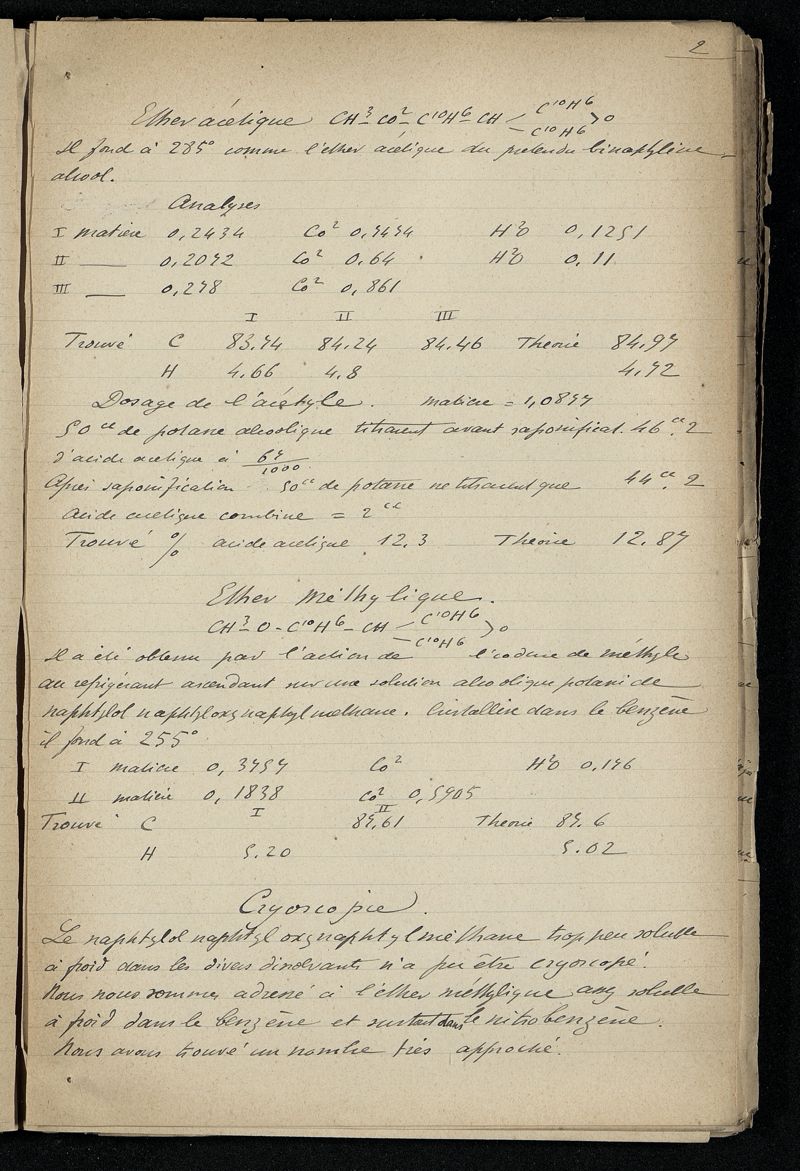 2
Ether acétique CH³ – CO² – C¹⁰H⁶ – CH < C¹⁰H⁶ C¹⁰H⁶ > O
Il fond à 285° comme l'ether acétique du pretendu binaphtylène
alcool.
Analyses
I matiere 0,2434 Co² 0,7474 H²O 0,1251
II — 0,2072 Co² 0,64 H²O 0,11
III — 0,278 Co² 0,861
I II III
Trouvé C 83.74 84.24 84.46 Theorie 84.97
H 4.66 4.8 4.72
Dosage de l'acétyle. matiere = 1,0877
50 cc de potasse alcoolique titraient avant saponificat. 46 cc. 2
d'acide acetique à 67/1000
Après saponification 50 cc de potasse ne titraient que 44 cc. 2
Acide acetique combine = 2 cc
Trouvé % acide acetique 12.3 Theorie 12.87
Ether Méthylique.
CH³ – O – C¹⁰H⁶ – CH < C¹⁰H⁶ C¹⁰H⁶ > O
Il a été obtenu par l'action de l'iodure de méthyle
au refrigérant ascendant sur une solution alcoolique potassi de
naphtylol naphtyloxynaphtylméthane. Cristallise dans le benzène
il fond à 255°.
I matiere 0,3757 Co² H²O 0,176
II matière 0,1838 Co² 0,5905
I II
Trouvé C 87,61 Theorie 87.6
H 5.20 5.02
Cryoscopie.
Le naphtylol naphtyl oxynaphtylméthane trop peu soluble
à froid dans les divers dissolvants n'a pu être cryoscopé.
Nous nous sommes adressé à l'éther méthylique assez soluble
à froid dans le benzène et surtout dans le nitrobenzène.
Nous avons trouvé un nombre très approché.